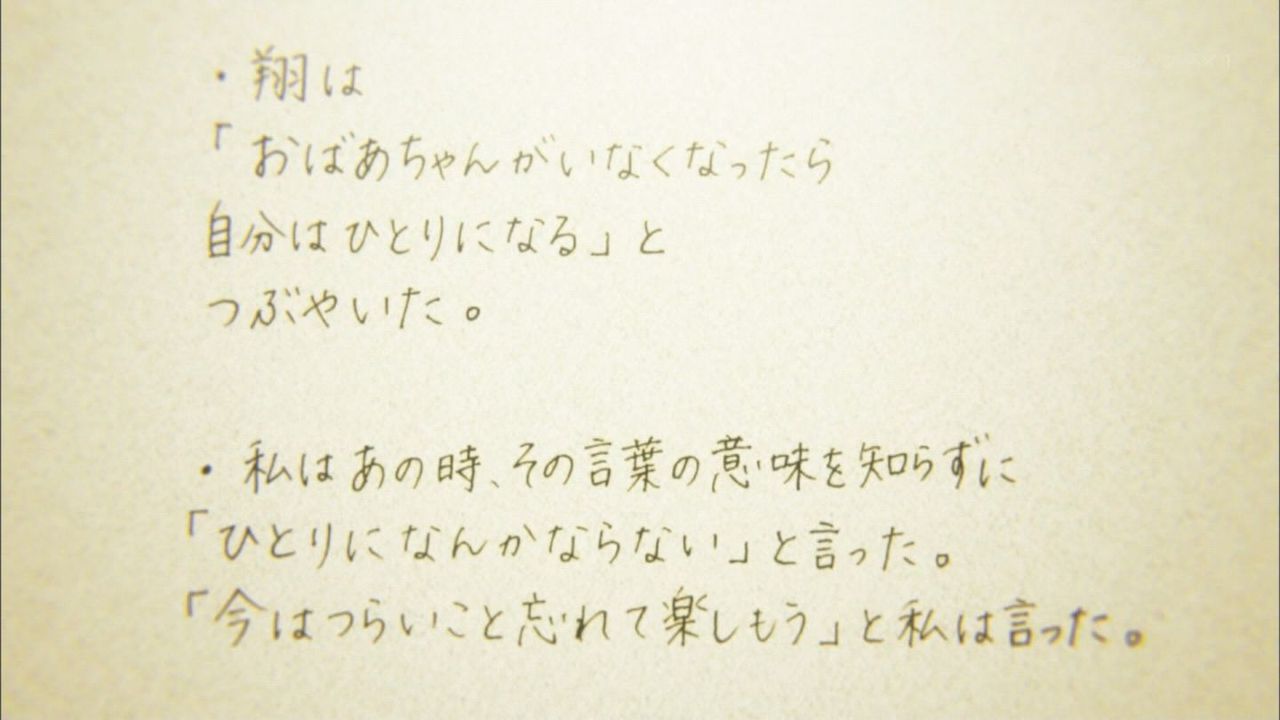 ・翔は
「おばあちゃんがいなくなったら
自分はひとりになる」と
つぶやいた。
・私はあの時、その言葉の意味を知らずに
「ひとりになんかならない」と言った。
「今はつらいこと忘れて楽しもう」と私は言った。